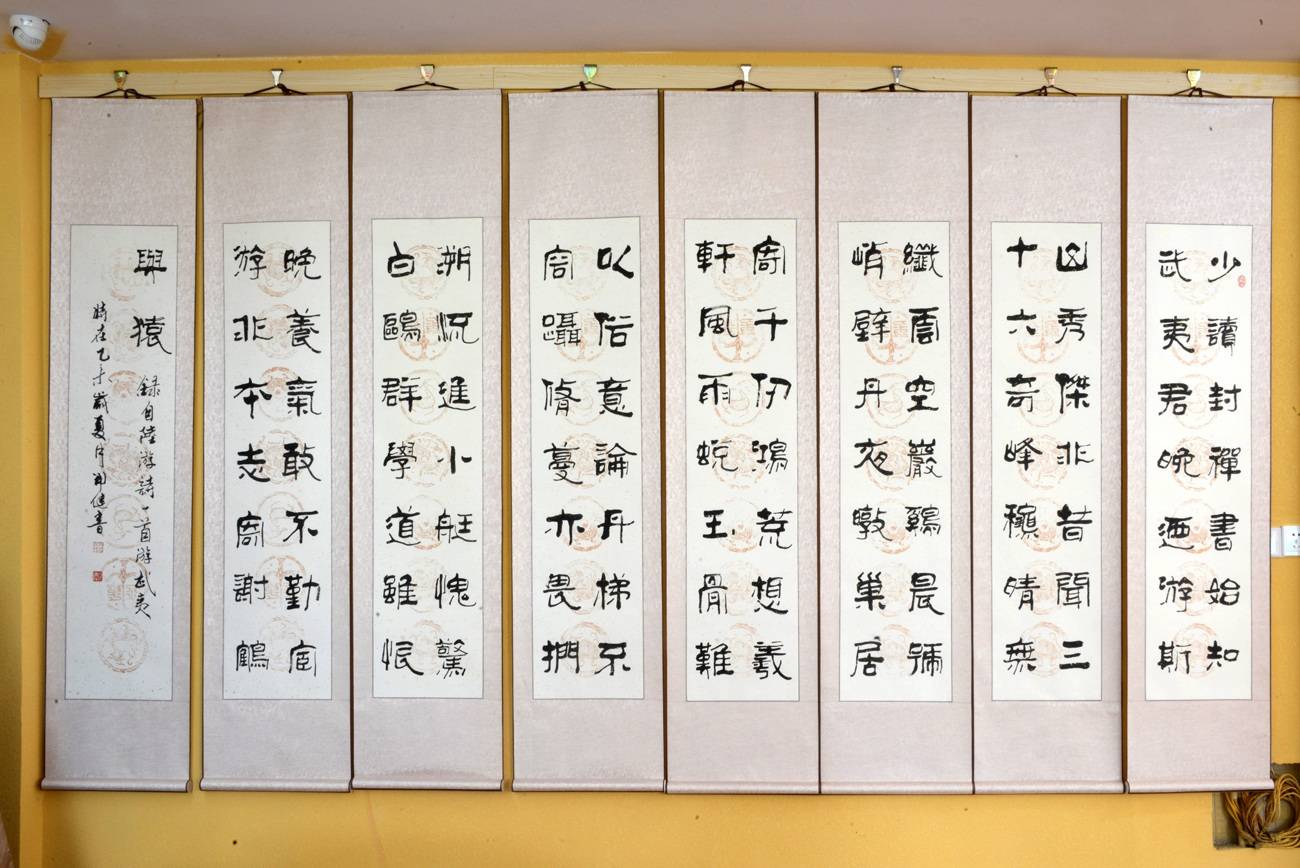 少讀封禪書始知
武夷君晚迺游斯
山秀傑非昔聞三
十六奇峰穐晴無
纖雲空巖鷄晨號
峭壁丹夜暾巢居
寄千仞鴻荒想羲
軒風雨蛻玉骨難
以俗意論丹梯不
容躡脩蔓亦畏捫
溯流進小艇愧驚
白鷗群學道雖恨
晚養氣敢不勤宦
游非本志寄謝鶴
與猿
録自陸游詩一首游武夷
時在乙未歲夏月健書